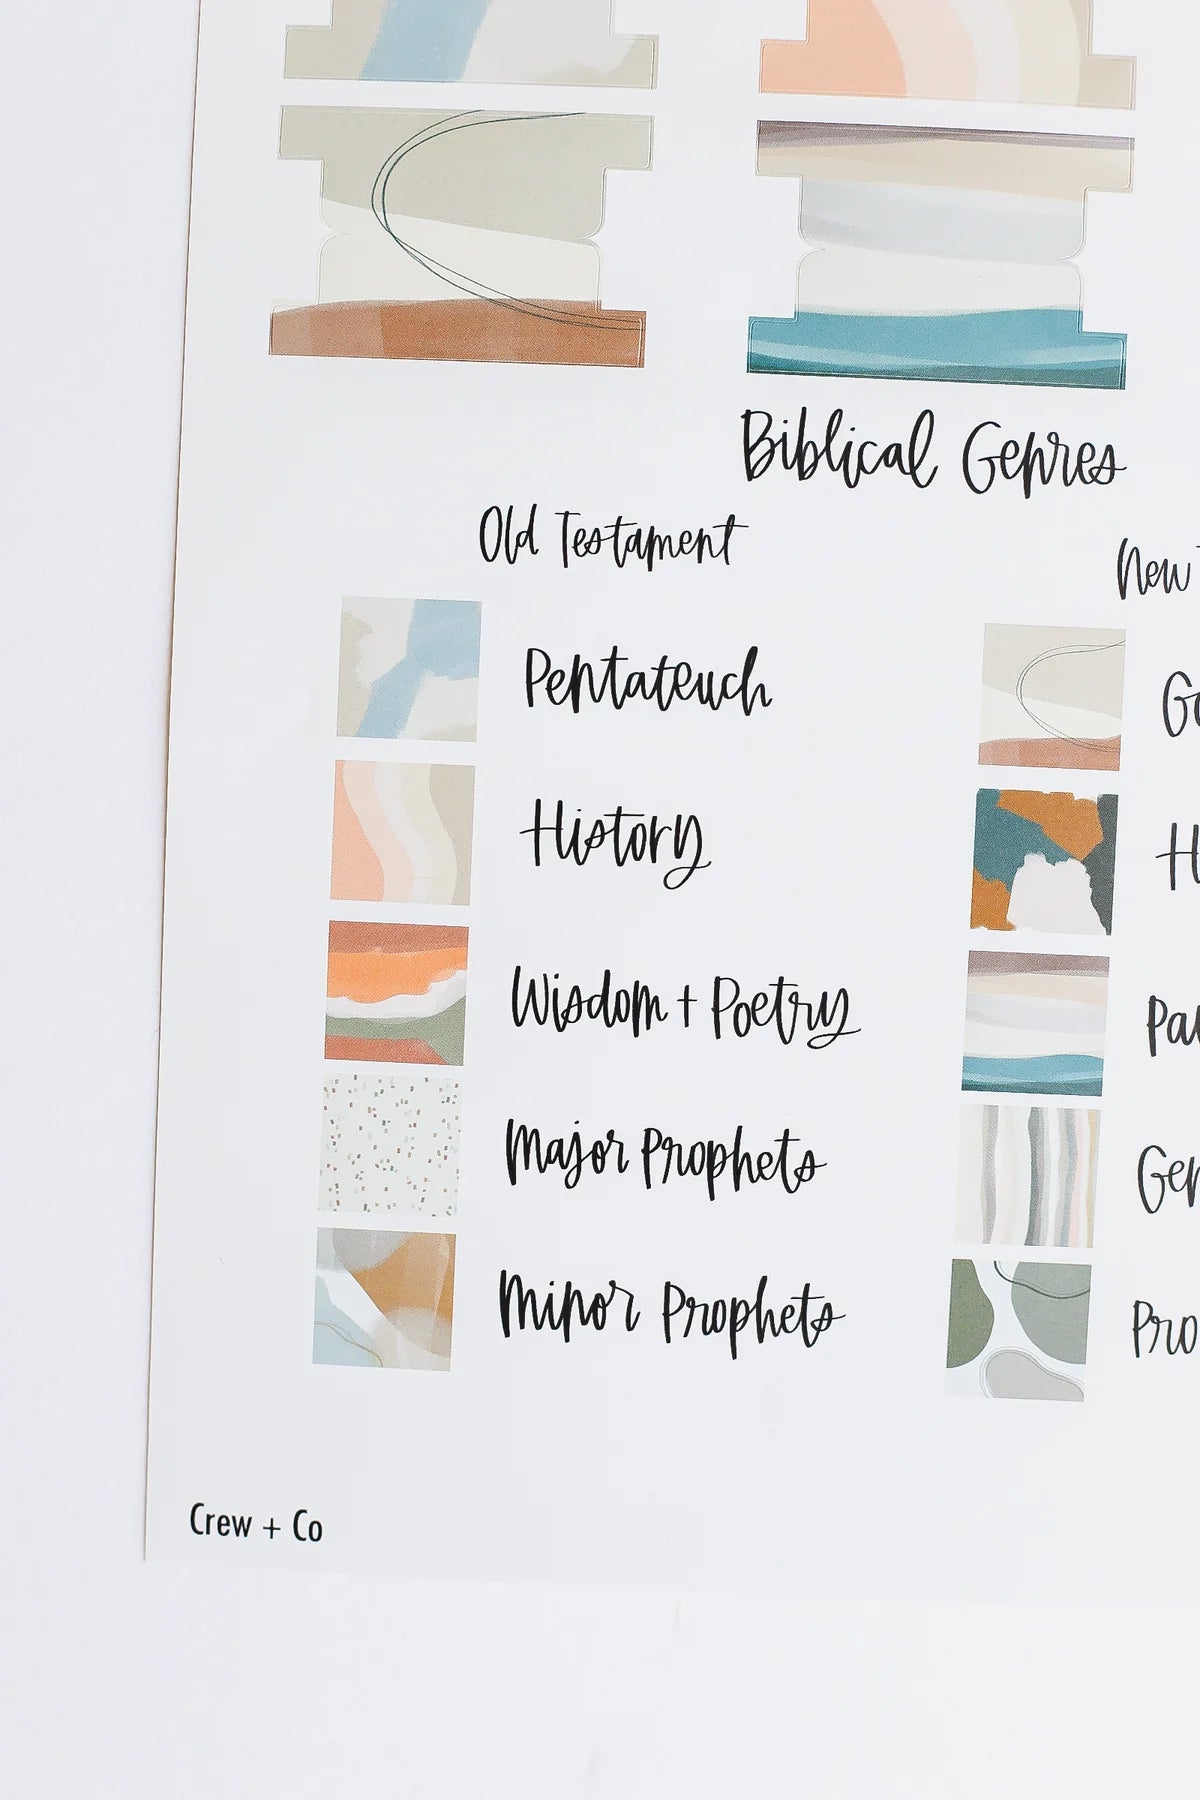 Biblical Genres
Old Testament
New
Pentateuch
History
Wisdom + Poetry
Major Prophets
Minor Prophets
Crew + Co